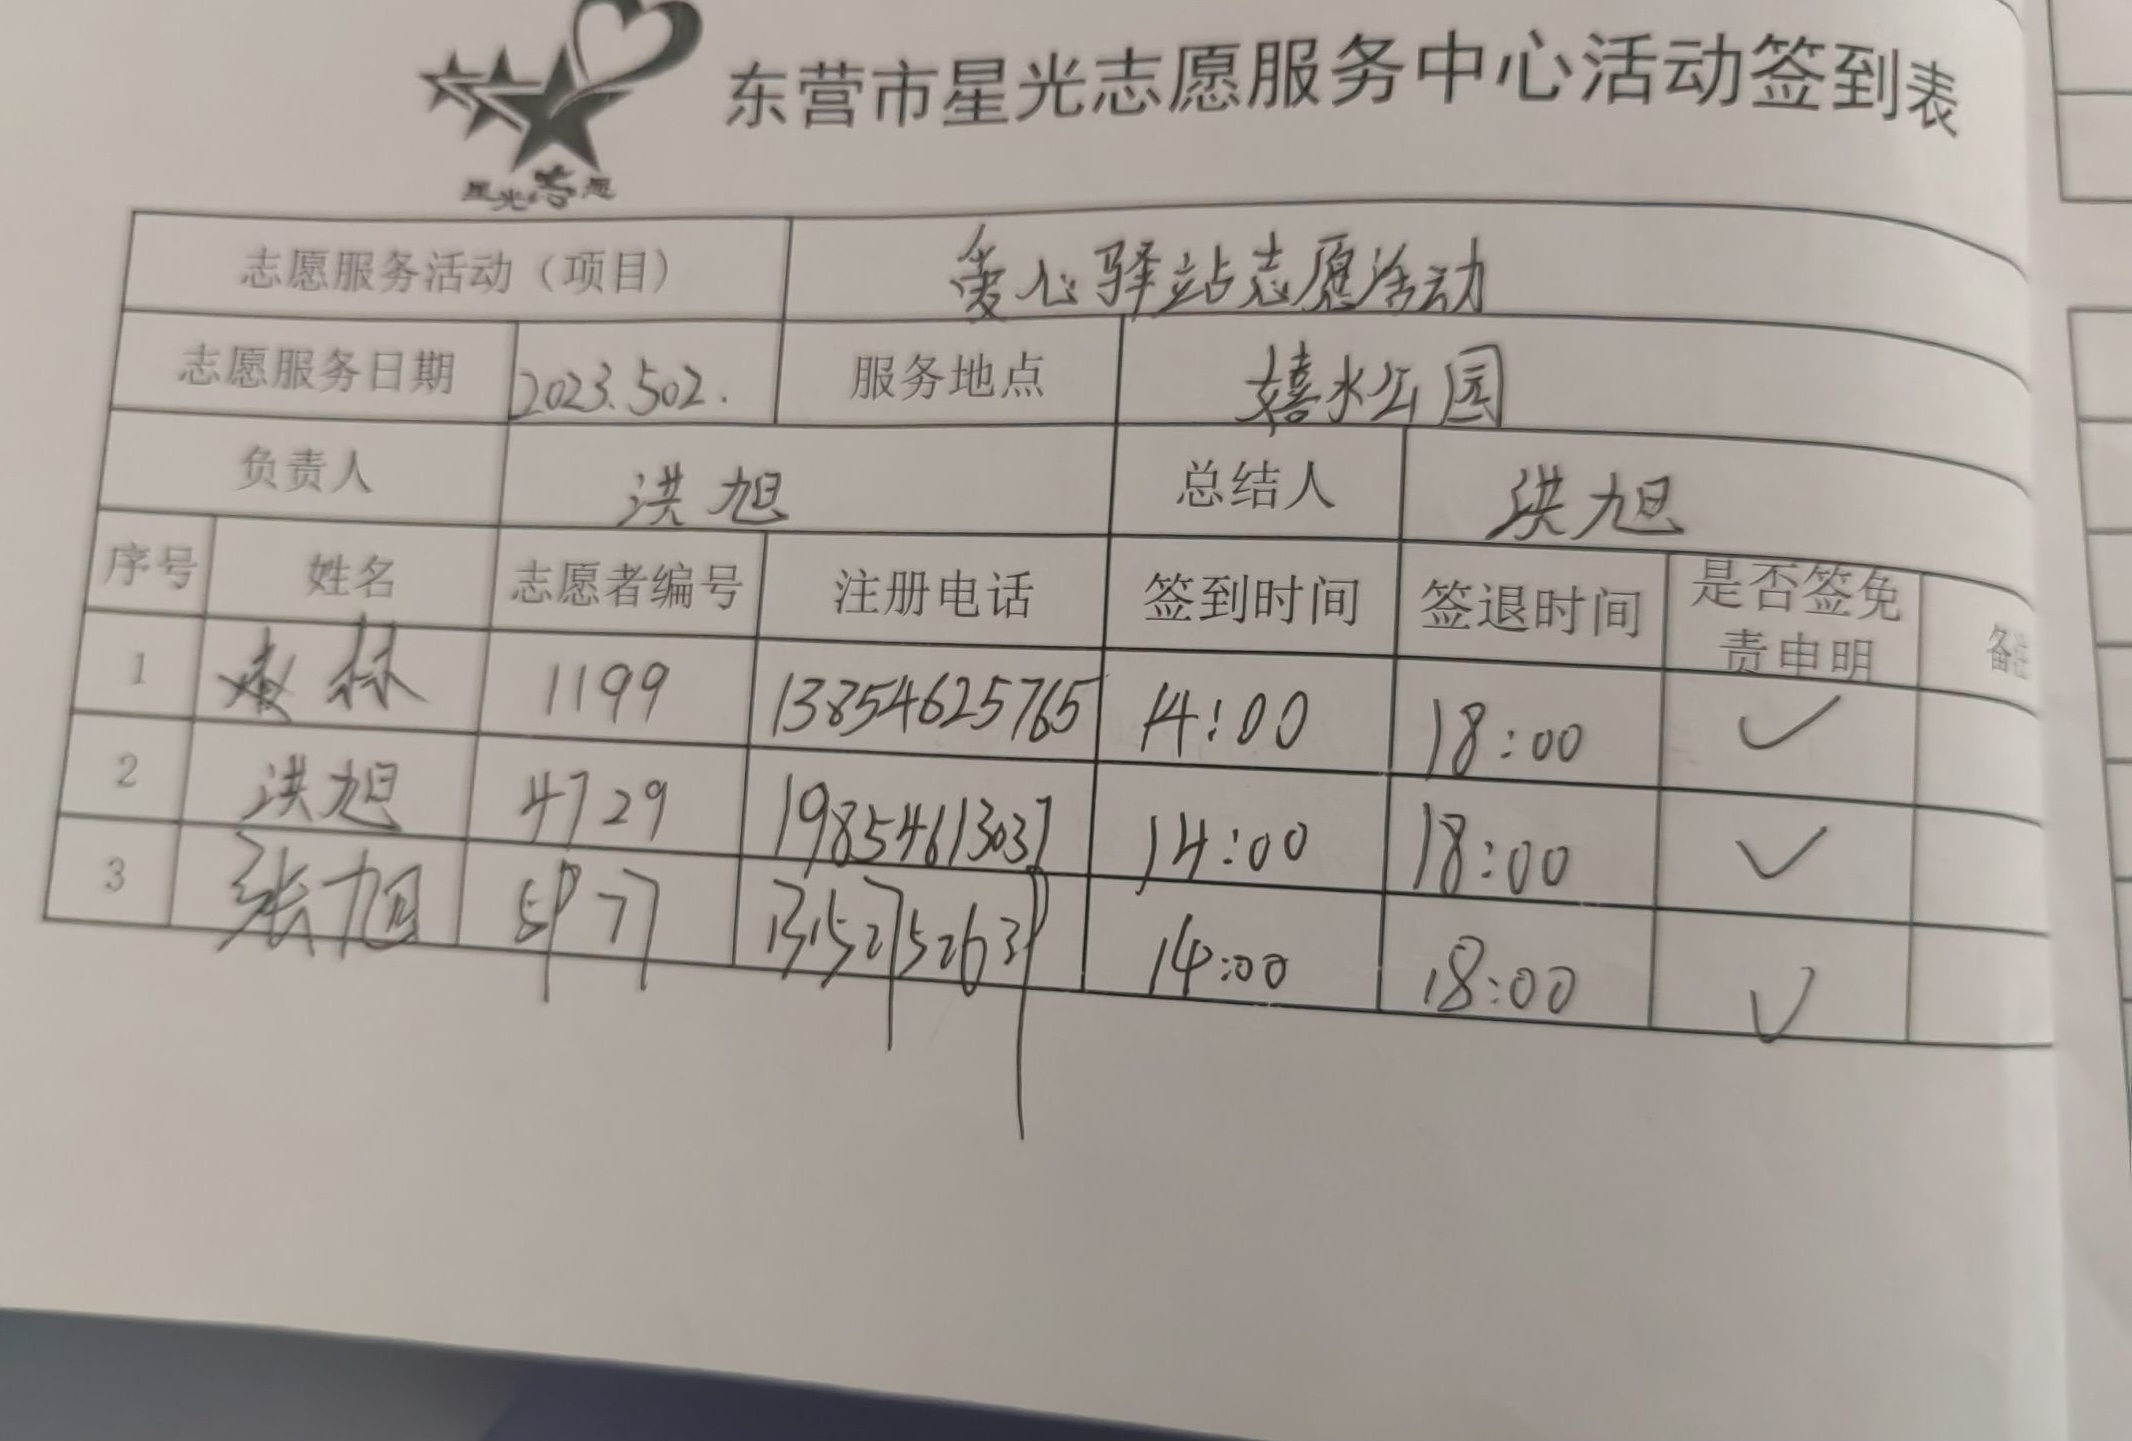 星光志愿
东营市星光志愿服务中心活动签到表
志愿服务活动（项目） 爱心驿站志愿活动
志愿服务日期 2023.502. 服务地点 嬉水公园
负责人 洪旭 总结人 洪旭
序号 姓名 志愿者编号 注册电话 签到时间 签退时间 是否签免责申明 备注
1 林 1199 13854625765 14:00 18:00 ✓
2 洪旭 4729 19854613037 14:00 18:00 ✓
3 张旭 14:00 18:00 ✓